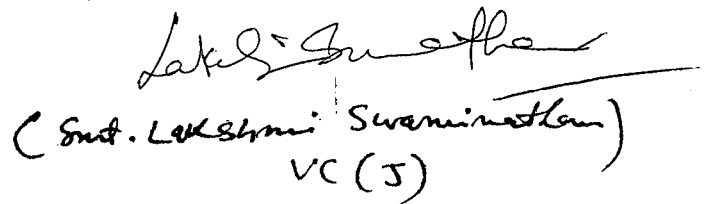 Lakshmi Swaminathan
( Smt. Lakshmi Swaminathan )
VC (J)